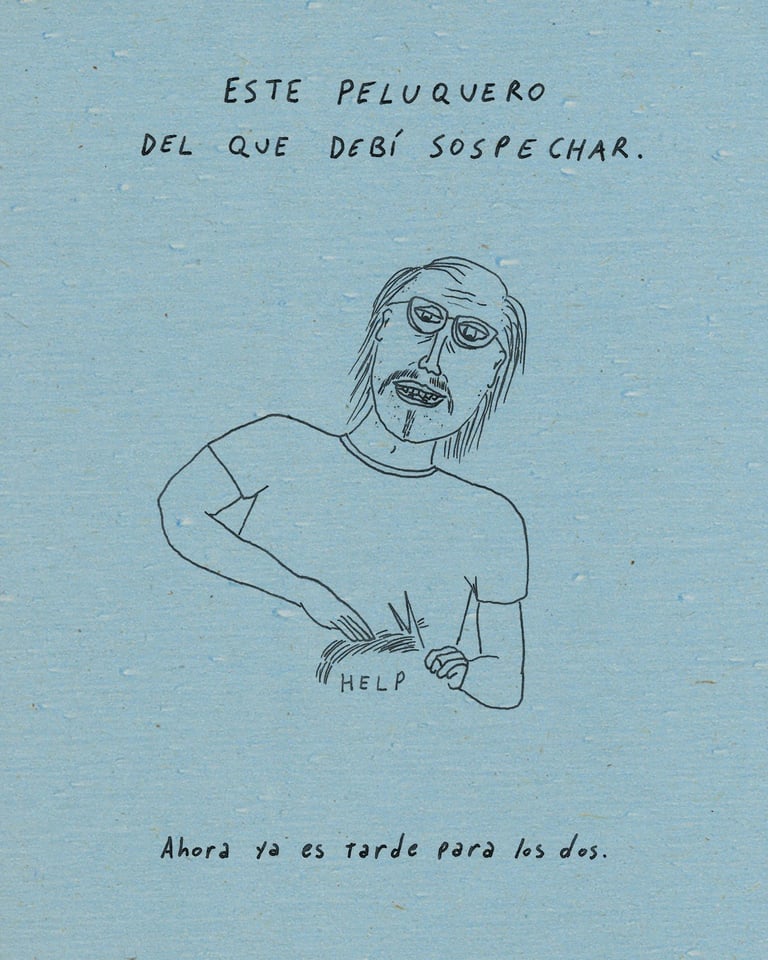 ESTE PELUQUERO
DEL QUE DEBÍ SOSPECHAR.
HELP
Ahora ya es tarde para los dos.